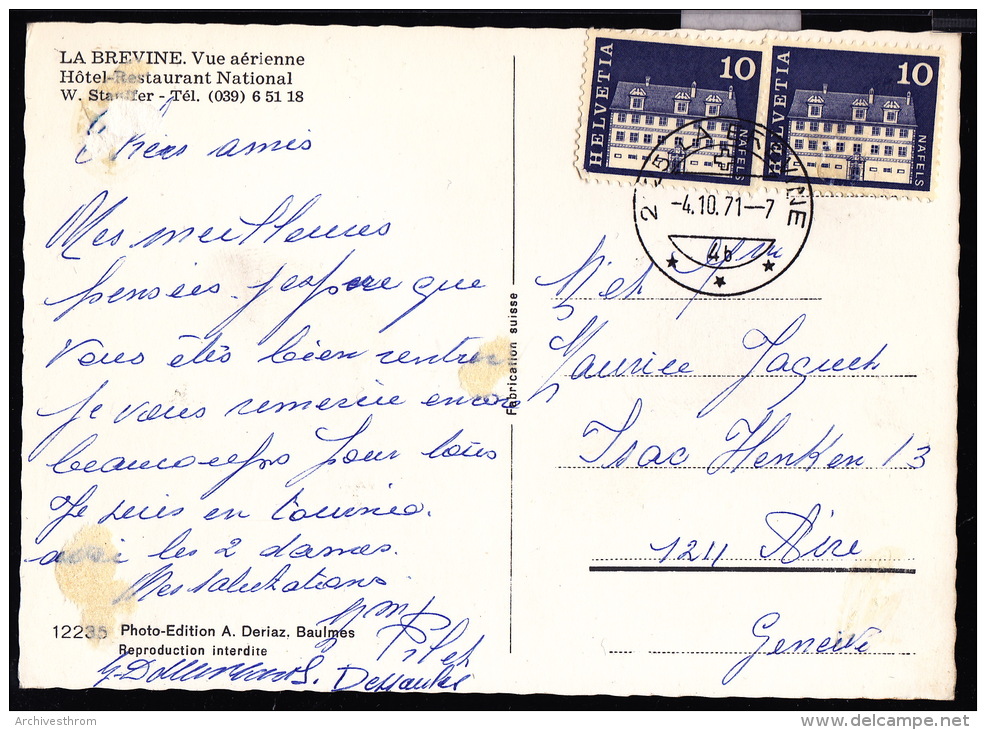 LA BREVINE. Vue aérienne
Hôtel-Restaurant National
W. Stauffer - Tél. (039) 6 51 18
Chers amis
Mes meilleures
pensées. j'espère que
vous êtes bien rentrés
Je vous remercie encore
beaucoups pour tous
Je suis en tournée.
avec les 2 dames.
Mes salutations
Pilet
12235 Photo-Edition A. Deriaz, Baulmes
Reproduction interdite
Fabrication suisse
HELVETIA 10 NÄFELS
HELVETIA 10 NÄFELS
LA BREVINE
-4.10.71--7
4b
M et Mme
Maurice Jaquet
Isac Henken 13
1211 Aire
Genève
Archivesthrom
www.delcampe.net